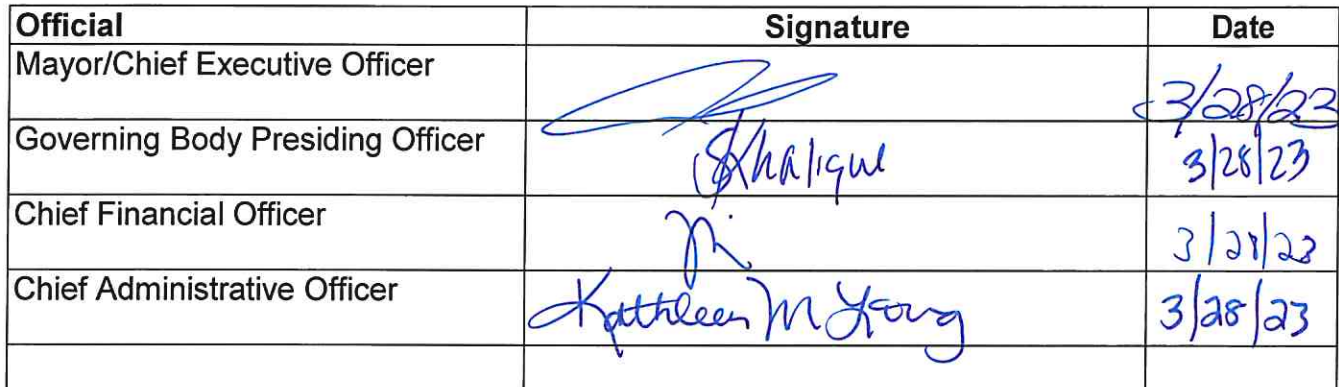 Official Signature Date
Mayor/Chief Executive Officer 3/28/23
Governing Body Presiding Officer SKhalique 3/28/23
Chief Financial Officer 3/28/23
Chief Administrative Officer Kathleen M 3/28/23